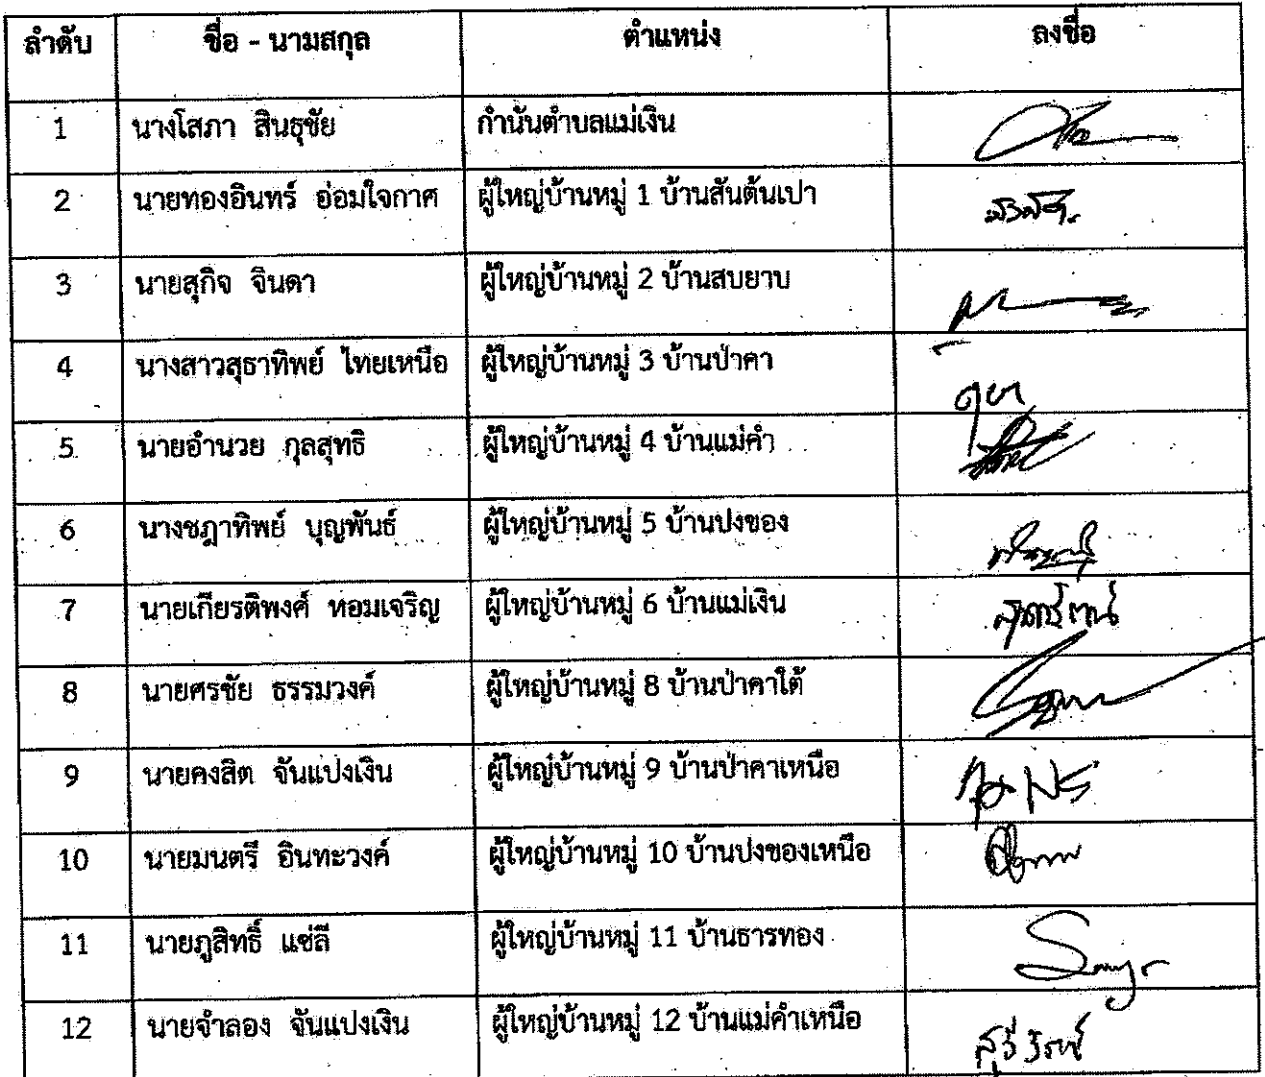 ลำดับ ชื่อ - นามสกุล ตำแหน่ง ลงชื่อ
1 นางโสภา สินธุชัย กำนันตำบลแม่เงิน
2 นายทองอินทร์ อ่อมใจกาศ ผู้ใหญ่บ้านหมู่ 1 บ้านสันต้นเปา
3 นายสุกิจ จินดา ผู้ใหญ่บ้านหมู่ 2 บ้านสบยาบ
4 นางสาวสุธาทิพย์ ไทยเหนือ ผู้ใหญ่บ้านหมู่ 3 บ้านป่าคา
5 นายอำนวย กุลสุทธิ ผู้ใหญ่บ้านหมู่ 4 บ้านแม่คำ
6 นางชฎาทิพย์ บุญพันธ์ ผู้ใหญ่บ้านหมู่ 5 บ้านปงของ
7 นายเกียรติพงศ์ หอมเจริญ ผู้ใหญ่บ้านหมู่ 6 บ้านแม่เงิน
8 นายศรชัย ธรรมวงค์ ผู้ใหญ่บ้านหมู่ 8 บ้านป่าคาใต้
9 นายคงสิต จันแปงเงิน ผู้ใหญ่บ้านหมู่ 9 บ้านป่าคาเหนือ
10 นายมนตรี อินทะวงค์ ผู้ใหญ่บ้านหมู่ 10 บ้านปงของเหนือ
11 นายภูสิทธิ์ แซ่ลี ผู้ใหญ่บ้านหมู่ 11 บ้านธารทอง
12 นายจำลอง จันแปงเงิน ผู้ใหญ่บ้านหมู่ 12 บ้านแม่คำเหนือ